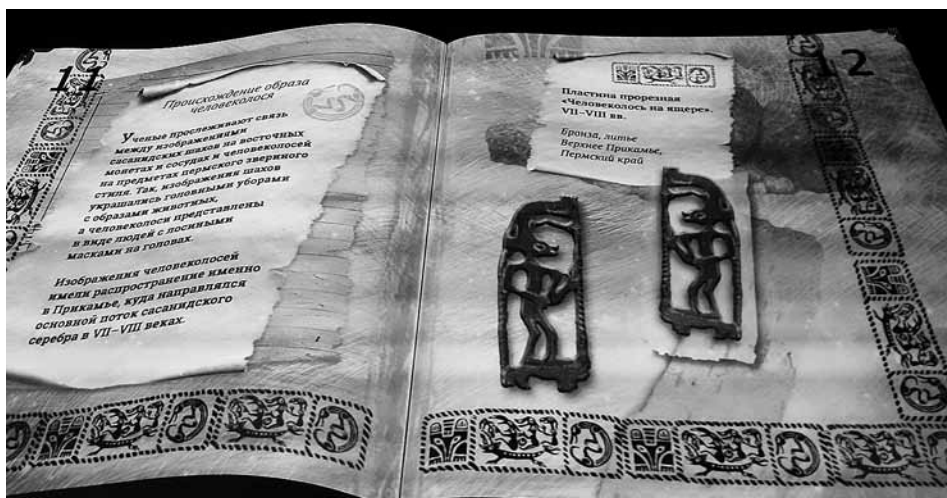 11
Происхождение образа
человеколося
Ученые прослеживают связь
между изображениями
сасанидских шахов на восточных
монетах и сосудах и человеколосей
на предметах пермского звериного
стиля. Так, изображения шахов
украшались головными уборами
с образами животных,
а человеколоси представлены
в виде людей с лосиными
масками на головах.
Изображения человеколосей
имели распространение именно
в Прикамье, куда направлялся
основной поток сасанидского
серебра в VII–VIII веках.
12
Пластина прорезная
«Человеколось на ящере».
VII–VIII вв.
Бронза, литье
Верхнее Прикамье,
Пермский край